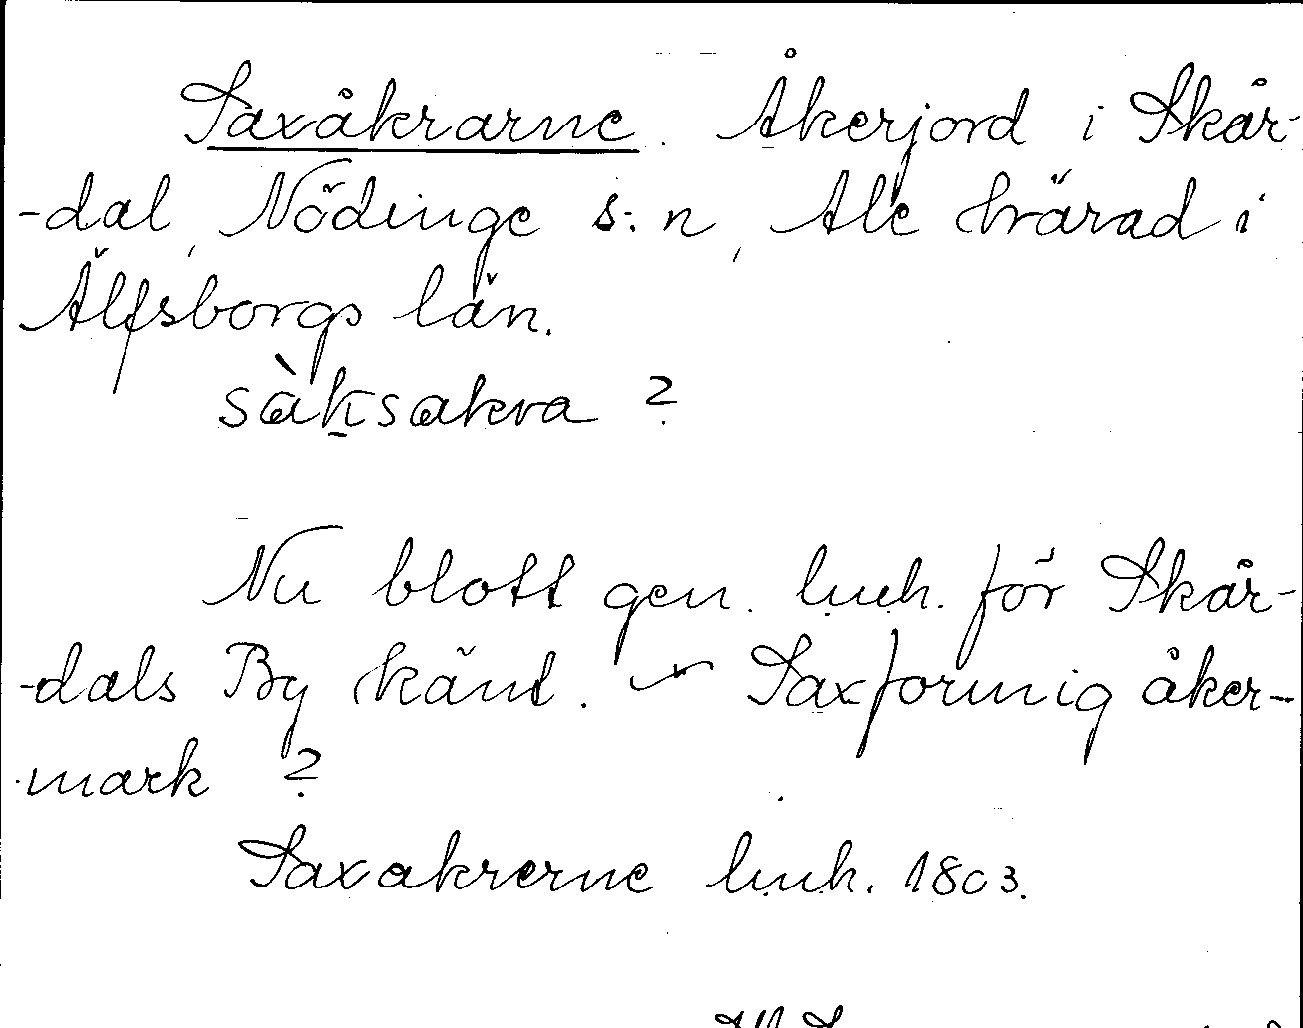 Saxåkrarne. Åkerjord i Skår-
-dal, Nödinge s:n, Ale härad i
Älfsborgs län.
sàksakra ?
Nu blott gen. lmh. för Skår-
-dals By känd. Saxformig åker-
mark ?
Saxakrerne lmh. 1803.